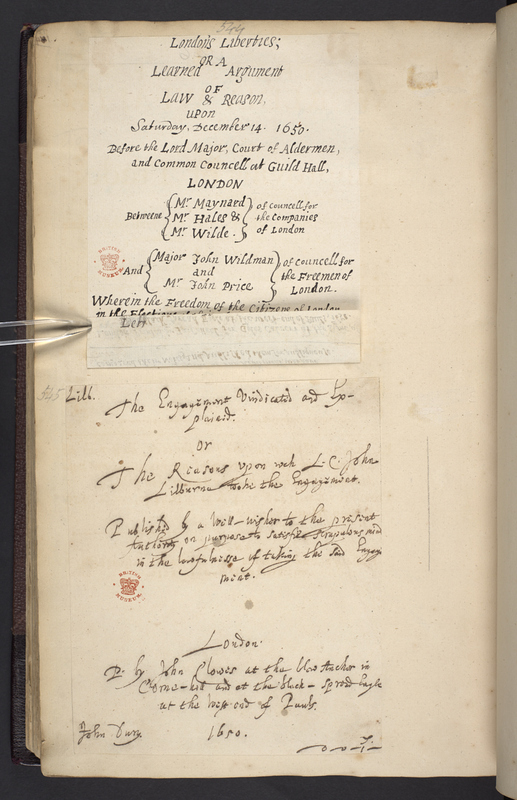 544
London's Liberties;
OR A
Learned Argument
OF
Law & Reason,
UPON
Saturday, December 14. 1650.
Before the Lord Major, Court of Aldermen,
and Common Councell at Guild Hall,
LONDON
Betweene { Mr Maynard Mr Hales & Mr Wilde. } of Councell for the Companies of London
BRITISH MUSEUM
And { Major John Wildman and Mr John Price } of Councell for the Freemen of London.
Wherein the Freedom of the Citizens of London
in the Elections
545 Lilb.
The Engagement Vindicated and Ex-
plained.
or
The Reasons upon wch L. C. John
Lilburne tooke the Engagement.
Published by a well-wisher to the present
Authority on purpose to satisfie scrupulous
in the lawfulnesse of taking the said Engage
ment.
BRITISH MUSEUM
London.
P. by John Clowes at the blew Anchor in
Corne-hill and at the black-spread Eagle
at the west end of Pauls.
John Dury. 1650.